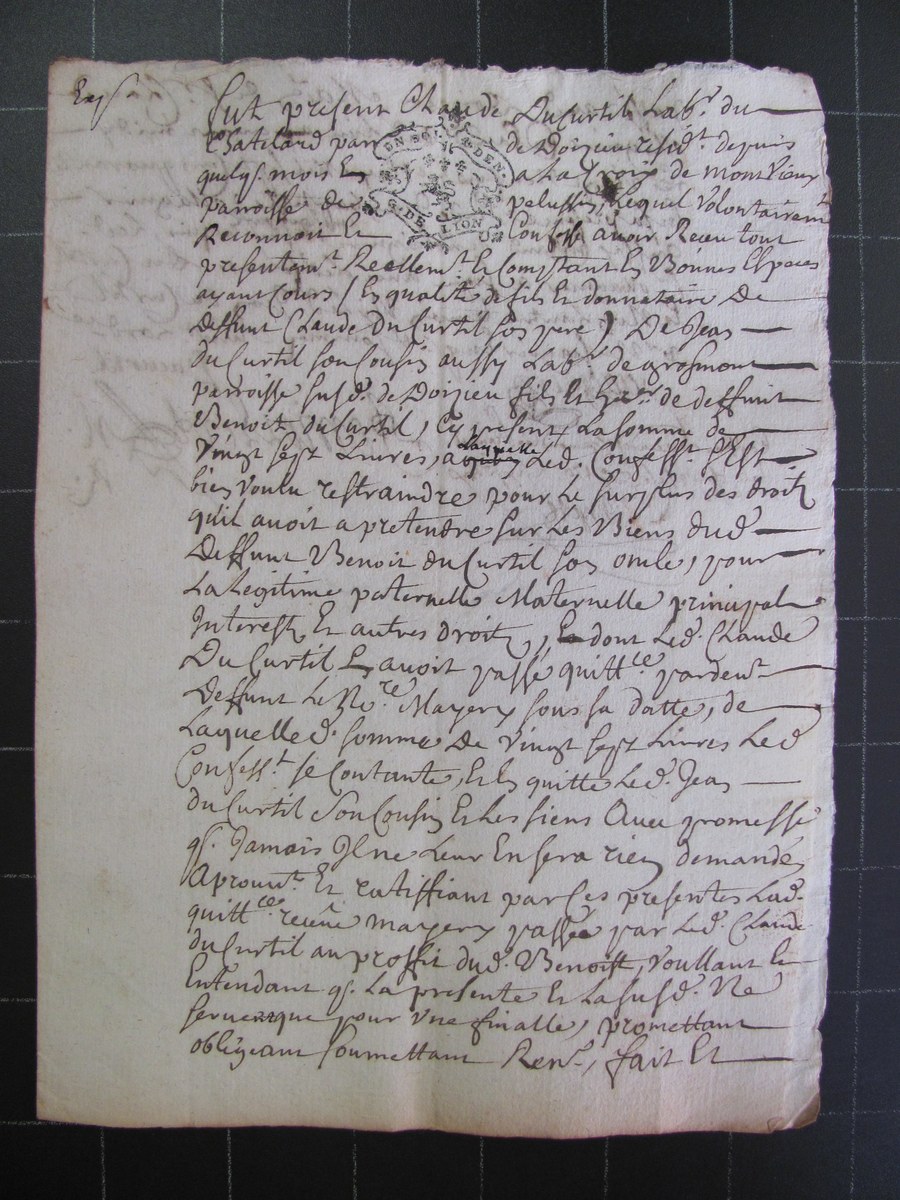 Exp.on
Fut present Claude Du Curtil Lab.r du
Chatelard parr de Doizieu resid.t depuis
quelq.s mois En a La Croix de Montvieux
parroisse de pelussin, Lequel Volontairem.t
Reconnoit Et Confesse avoir Receu tout
presentem.t Reellem.t Et Comptant En Bonnes Especes
ayant Cours (En qualité de fils Et donnataire De
deffunt Claude Du Curtil son pere) De Jean
du Curtil son Cousin aussy Lab.r de grosmont
parroisse susd. de Doizieu fils Et her.er de deffunt
Benoit du Curtil, Cy present, La somme de
Vingt sept Livres, a laquelle Led. Confess.t s'Est
bien voulu restraindre pour Le surplus des droitz
quil avoit a pretendre sur Les Biens dud.
Deffunt Benoit du Curtil son oncle, pour
La Legitime paternelle Maternelle principal
Interestz Et autres droitz, dont Led. Claude
Du Curtil En avoit passé quitt.ce pardev.t
Deffunt Le No.re Mayery sous sa datte, de
Laquelle d. somme De Vingt sept Livres Led.
Confess.t se Contante, Et En quitte Led. Jean
du Curtil son Cousin Et Les siens Avec promesse
q. Jamais Il ne Leur En sera rien demandé,
Aprouv.t Et ratiffiant par Ces presentes Lad.
quitt.ce receüe Mayery passée par Led. Claude
du Curtil au proffit dud. Benoist, voullant Et
Entendant q. La presente Et La susd. Ne
serve que pour Une finalle, promettant
obligeant soumettant Ren.t, fait Et
GEN. DE LION